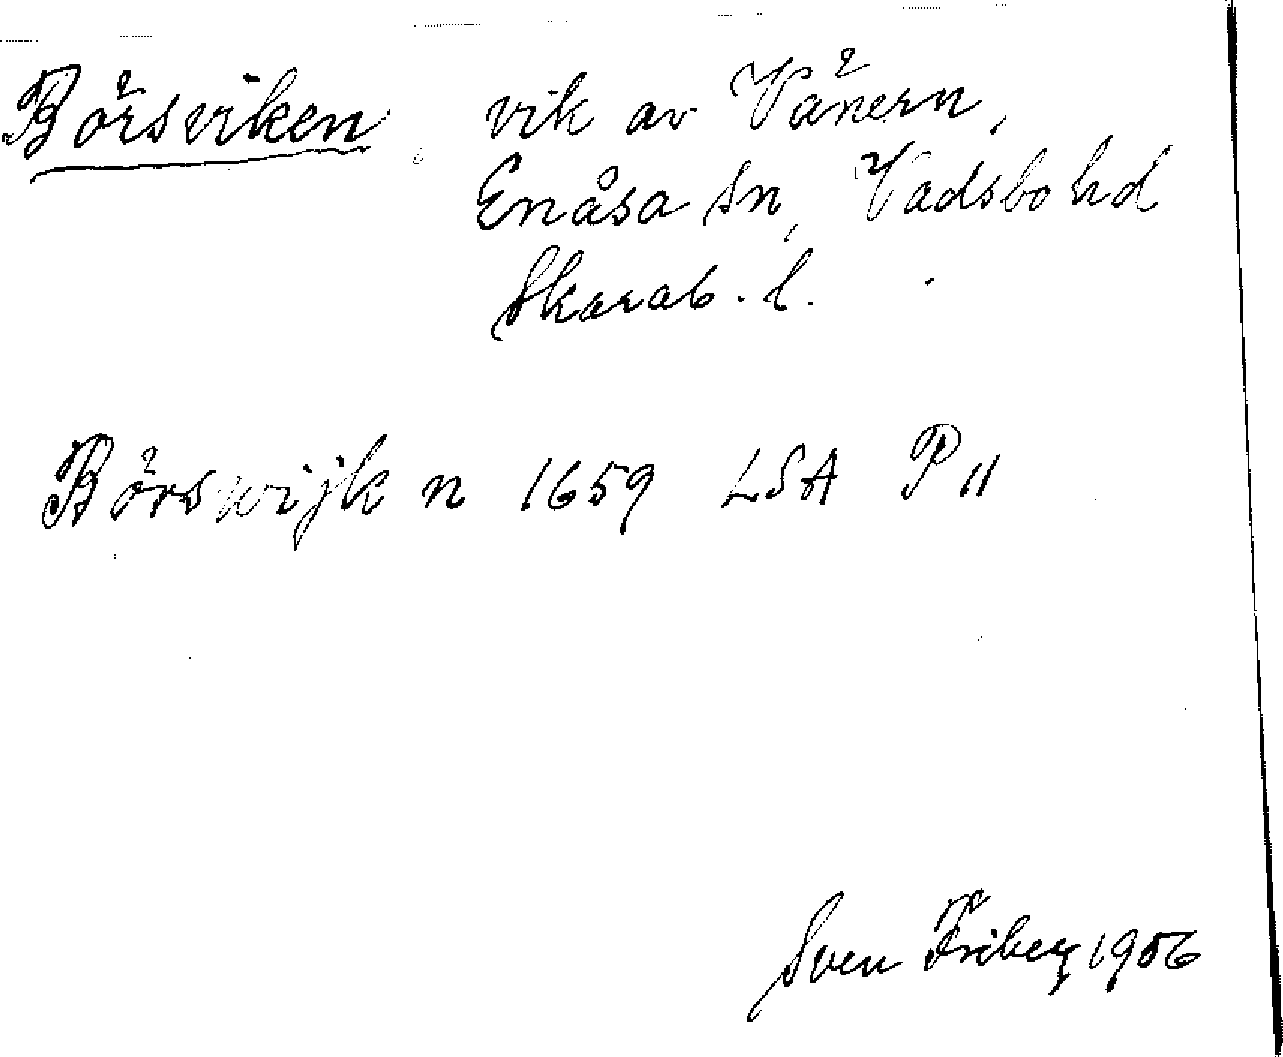 Börsviken vik av Vänern,
Enåsa sn, Vadsbo hd
Skarab. l.
Börswijk n 1659 LSA P 11
Sven Friberg 1956